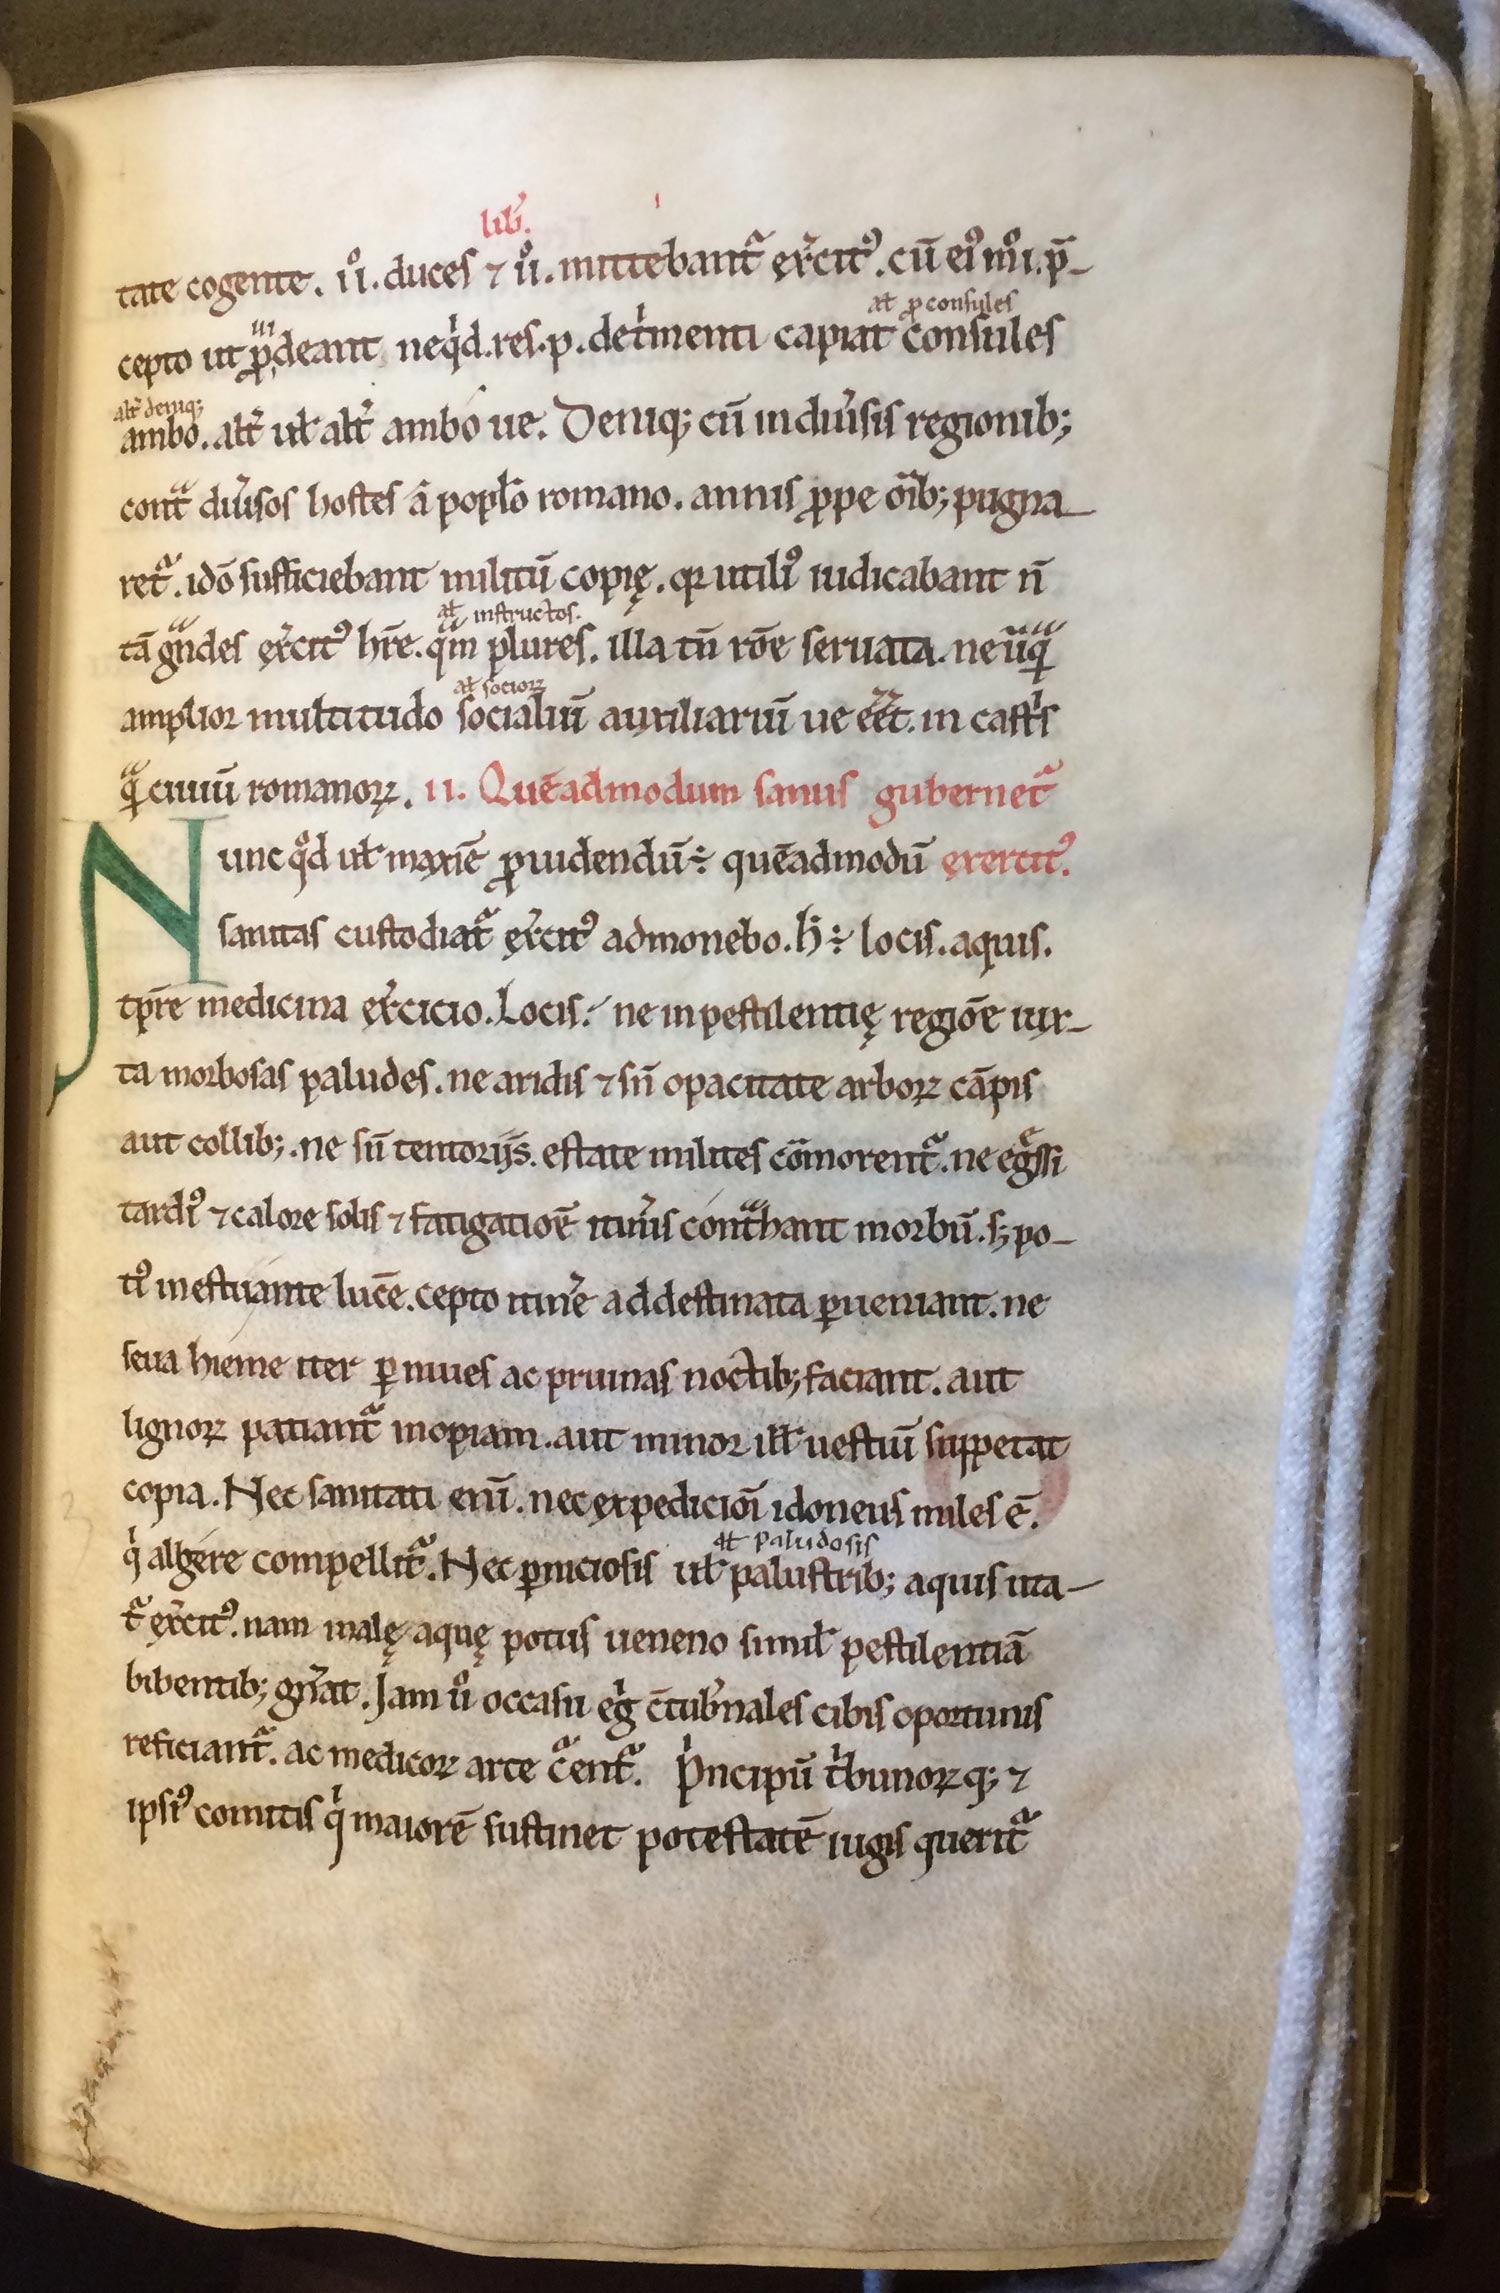 lib̄.
tate cogente. ii᷒. duces ⁊ ii᷒. mittebant᷑ exͤcitꝰ. cū eiꝰ mōi. p̄-
at ꝓconsules
cepto ut ꝓuideant neqͥd. res. p. detͥmenti capiat consules
alt̄ deniq;
ambo. alt̄ uł alt̄ ambo ue. Deniq; cū in diuͥsis regionib;
contᷓ diuͥsos hostes á popło romano. annis ꝓpe oīb; pugna-
ret᷑. idō sufficiebant militū copię. qr utiliꝰ iudicabant n̄
at instructos.
tā gᷓndes exͤcitꝰ hr̄e. qᷓm plures. illa tn̄ rōe seruata. ne ūqᷓ
at socioꝝ
amplior multitudo socialiū auxiliariū ue eēt. in castͥs
qᷓ ciuiū romanoꝝ. ii. Quēadmodum sanus gubernet᷑
Nunc qͦd uł maxīe ꝓuidendū ÷ quēadmodū exercitꝰ.
sanitas custodiat᷑ exͤcitꝰ admonebo. h̄ ÷ locis. aquis.
tp̄re medicina exͤcicio. Locis. ne in pestilentię regiōe iux-
ta morbosas paludes. ne aridis ⁊ sn̄ opacitate arboꝝ cāpis
aut collib;. ne sn̄ tentorijs. estate milites cōmorent᷑. ne egͤssi
tardiꝰ ⁊ calore solis ⁊ fatigatiōe itinͤis contᷓhant morbū. s; po-
tiꝰ in estuante lucē. cepto itinͤe ad destinata ꝑueniant. ne
seua hieme iter ꝑ niues ac pruinas noctib; faciant. aut
lignoꝝ patiant᷑ inopiam. aut minor illͥ uestiū suppetat
copia. Nec sanitati enī. nec expediciōi idoneus miles ē.
at paludosis
qͥ algere compellit᷑. Nec ꝑniciosis uł palustrib; aquis uta-
t᷑ exͤcitꝰ. nam malę aquę potus ueneno similͥ pestilentiā
bibentib; gn̄at. Jam ūo occasu egͥ c̄tubͤnales cibis oportunis
reficiant᷑. ac medicoꝝ arte cᷓent᷑. Pͥncipū tͥbunoꝝ q; ⁊
ipsiꝰ comitis qͥ maiorē sustinet potestatē iugis querit᷑